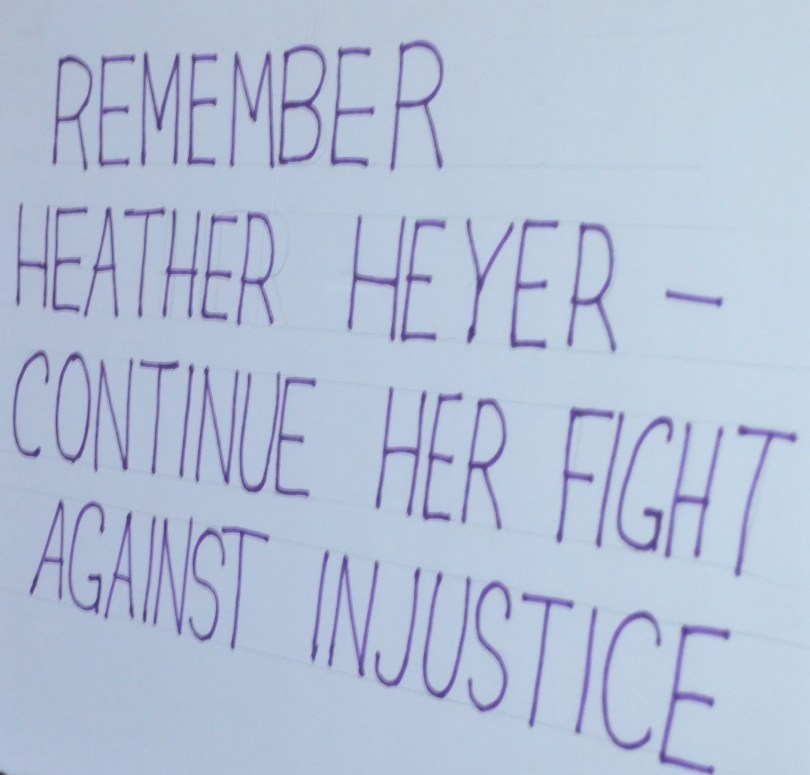 REMEMBER
HEATHER HEYER –
CONTINUE HER FIGHT
AGAINST INJUSTICE